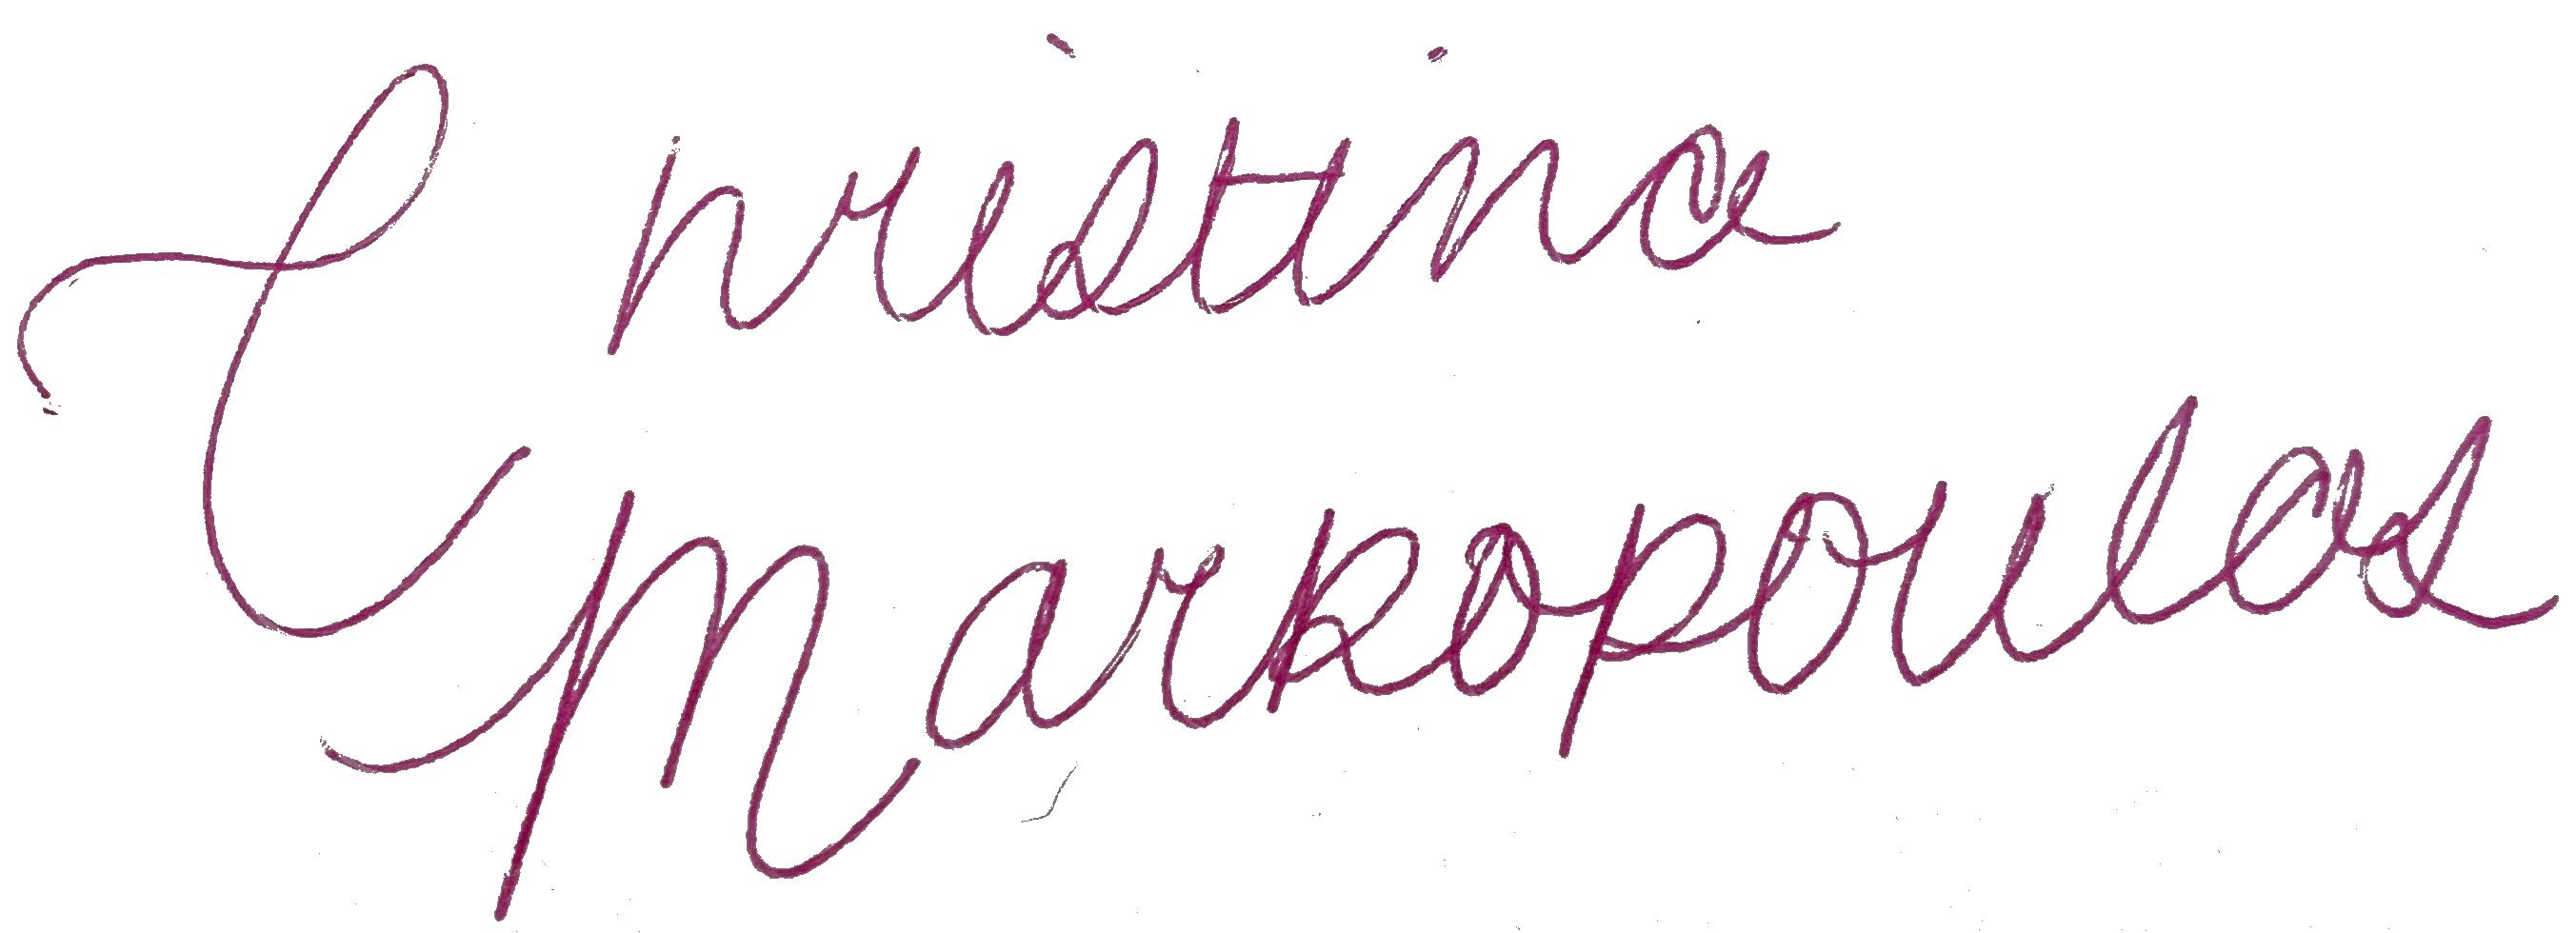 Christina
Markopoulos